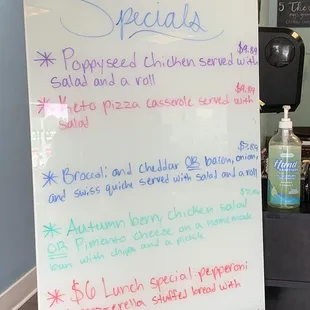 Specials
* Poppyseed chicken served with $9.89
salad and a roll
* Keto pizza casserole served with $9.89
salad
* Broccoli and cheddar OR bacon, onion,
and swiss quiche served with salad and a roll
* Autumn berry chicken salad
OR Pimento cheese on a homemade
bun with chips and a pickle
* $6 Lunch special: pepperoni
stuffed bread with
Hand